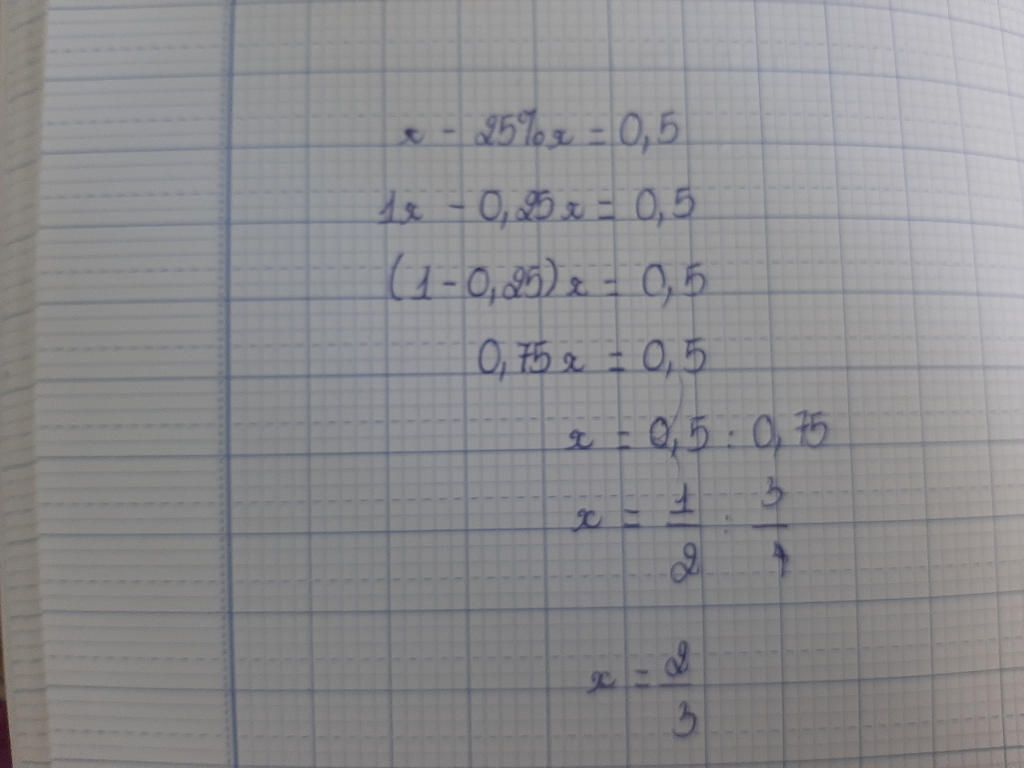 x - 25%x = 0,5
1x - 0,25x = 0,5
(1 - 0,25)x = 0,5
0,75x = 0,5
x = 0,5 : 0,75
x = 1/2 : 3/4
x = 2/3